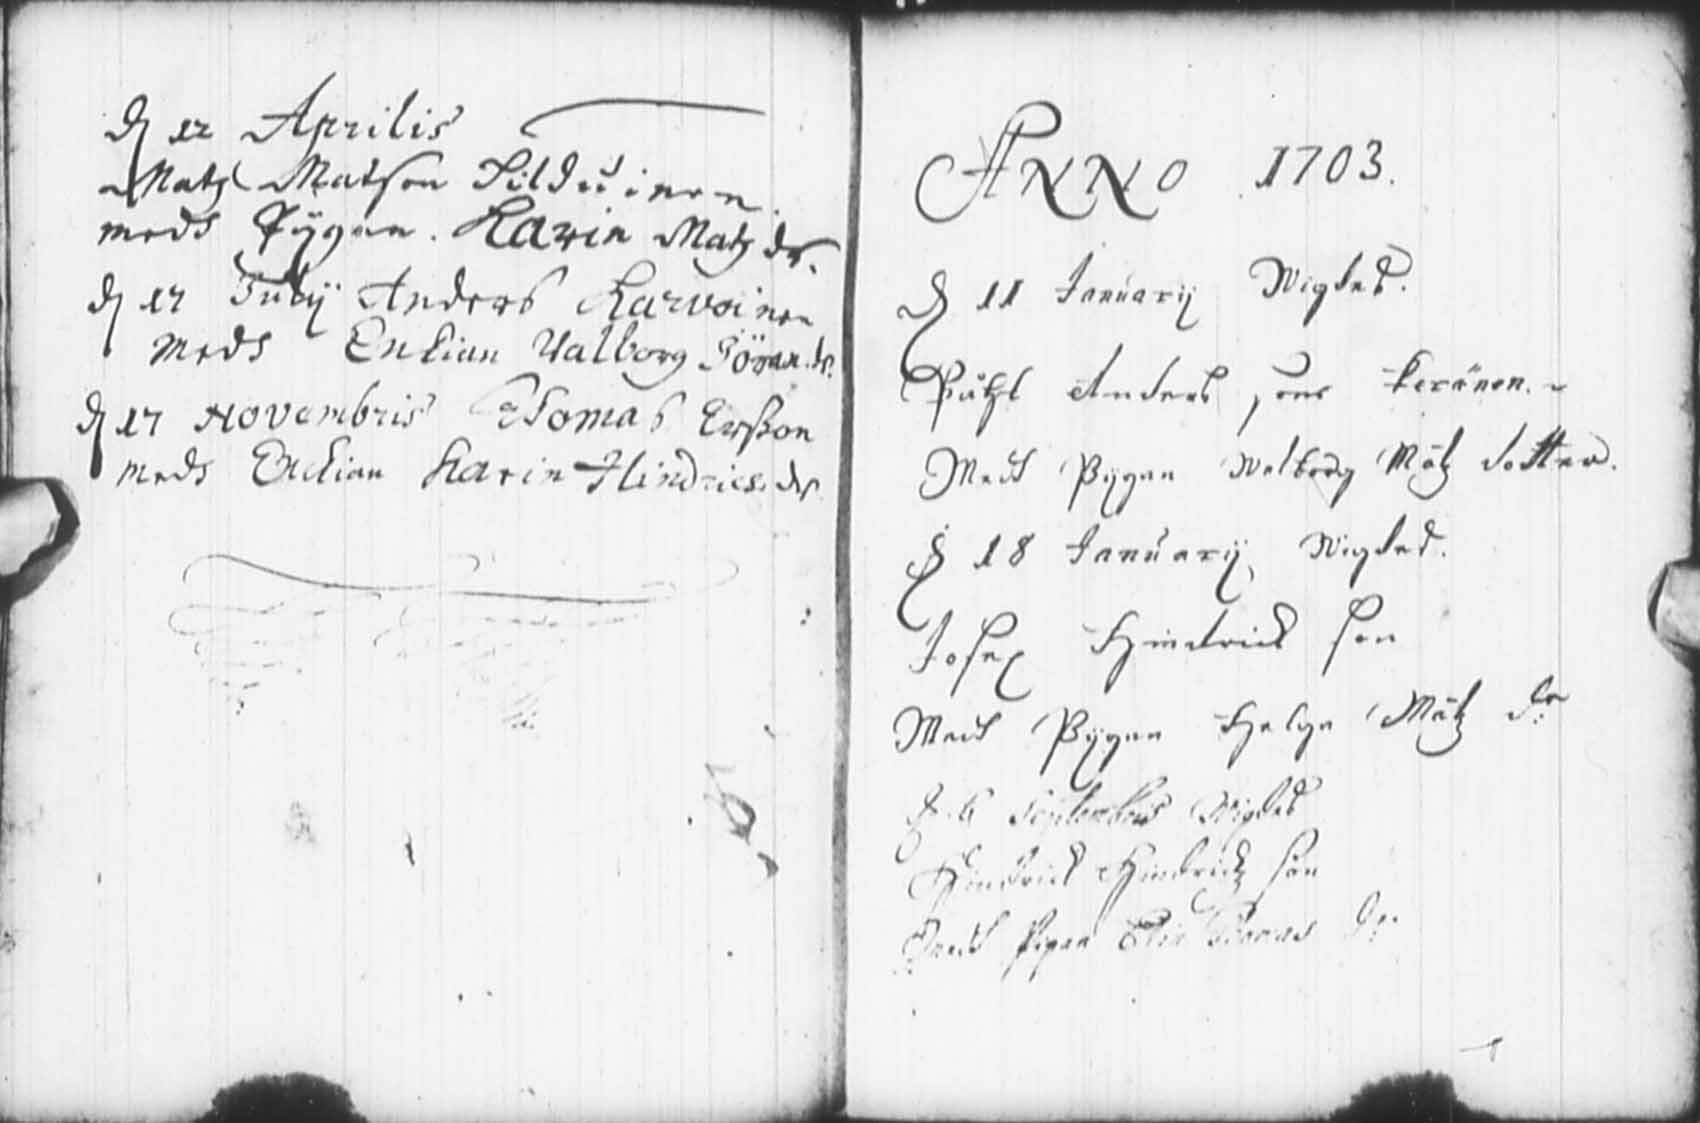 d 12 Aprilis
Matz Matson
meds Pygan. Karin Matz dr.
d 17 July Anders Karvoinen
meds Enkian Valborg Jöran dr.
d 17 Novembris Tomas Erßon
meds Enkian Karin Hindrics dr.
ANNO 1703.
d 11 January Wigdes.
Påhl Anders sone keränen.
Med Pygan Walborg Måtz dotter.
d 18 January Wigded.
Josep Hindrick son
Med Pygan Helga Måtz dr
d 6 Septembris Wigdes
Hindrick Hindrickz son
Med Pigan Elin Thomas dr.